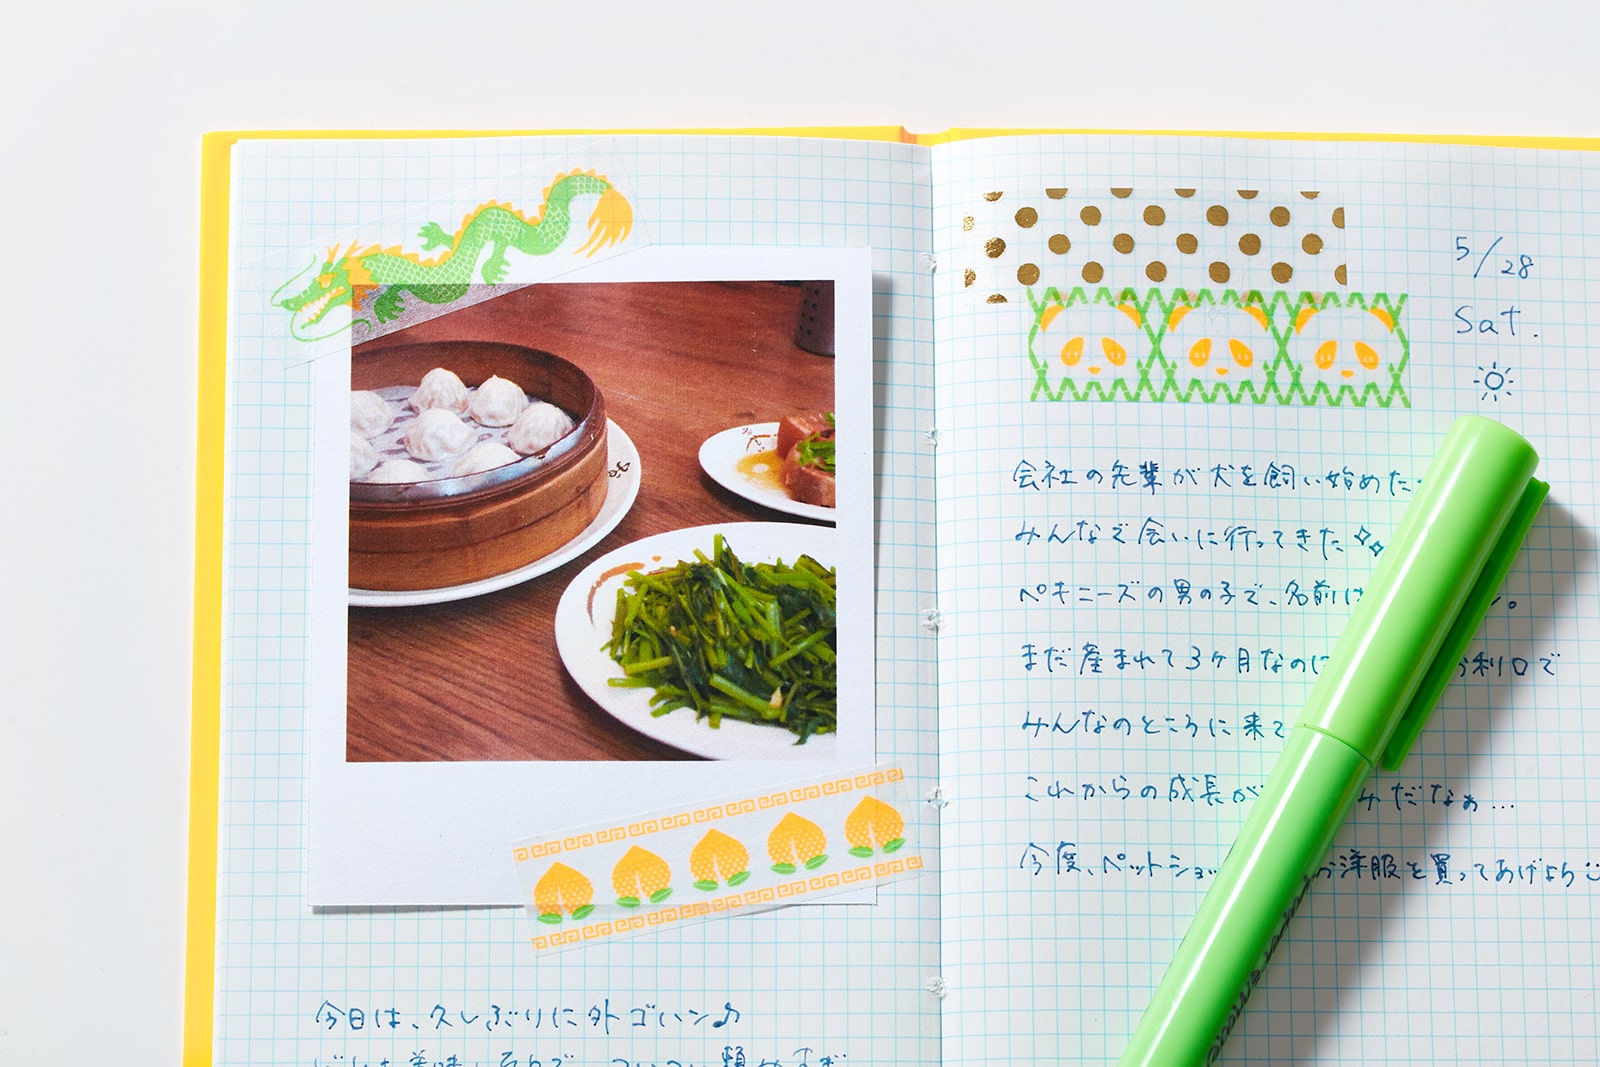 今日は、久しぶりに外ゴハン♪
5/28
Sat.
会社の先輩が犬を飼い始めた
みんなで会いに行ってきた
ペキニーズの男の子で、名前は
まだ産まれて3ヶ月なのに お利口で
みんなのところに来て
これからの成長が みだなぁ…
今度、ペットショッ 洋服を買ってあげよう